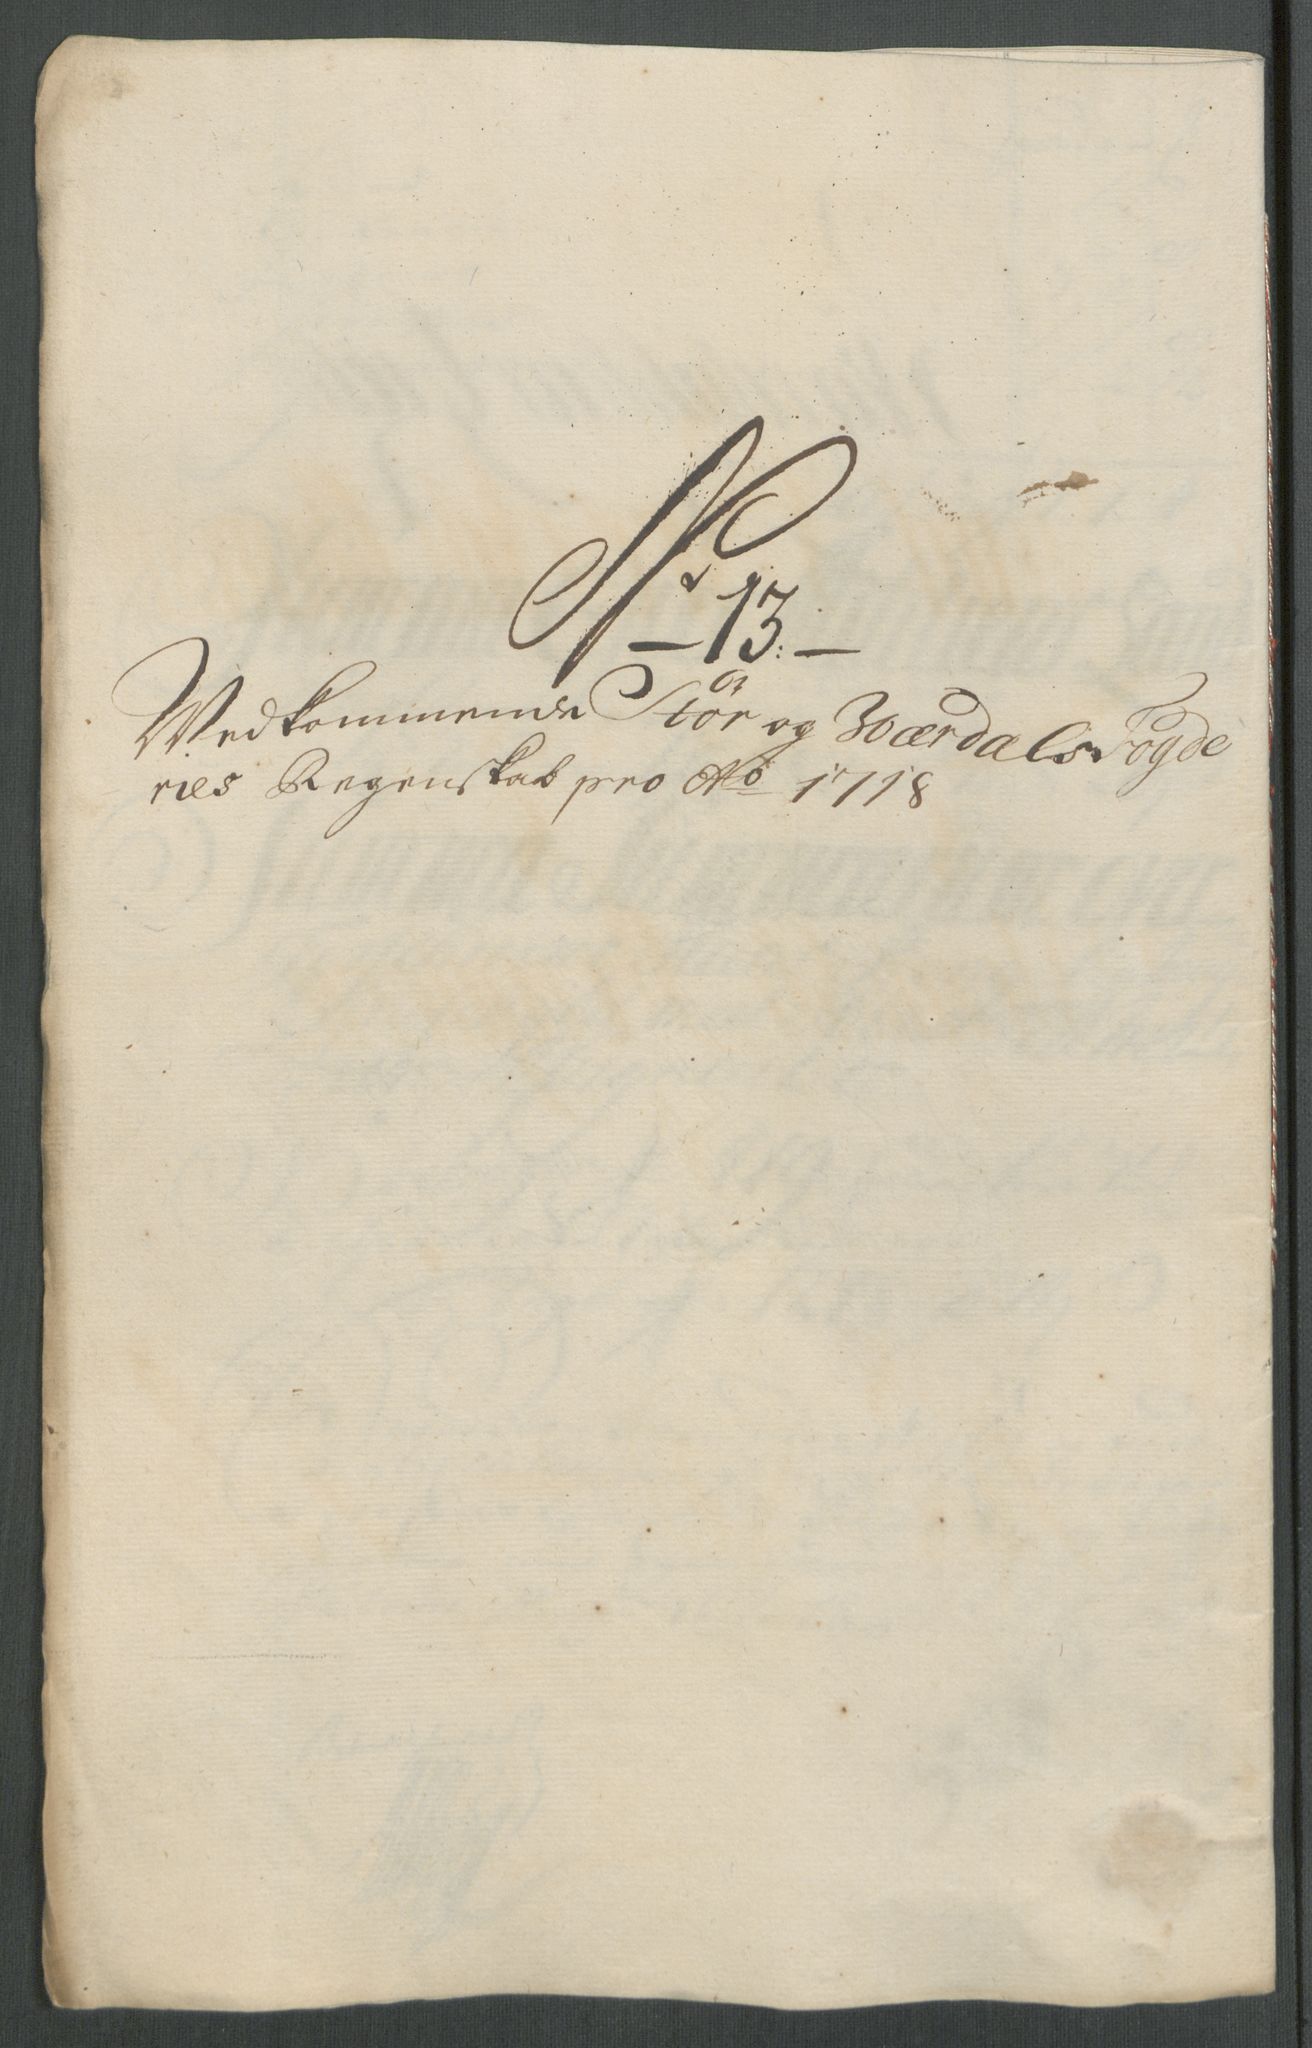 No 13.
Wedkommende Stör og Wærdals Fogde
ries Regenskab pro Ao 1718